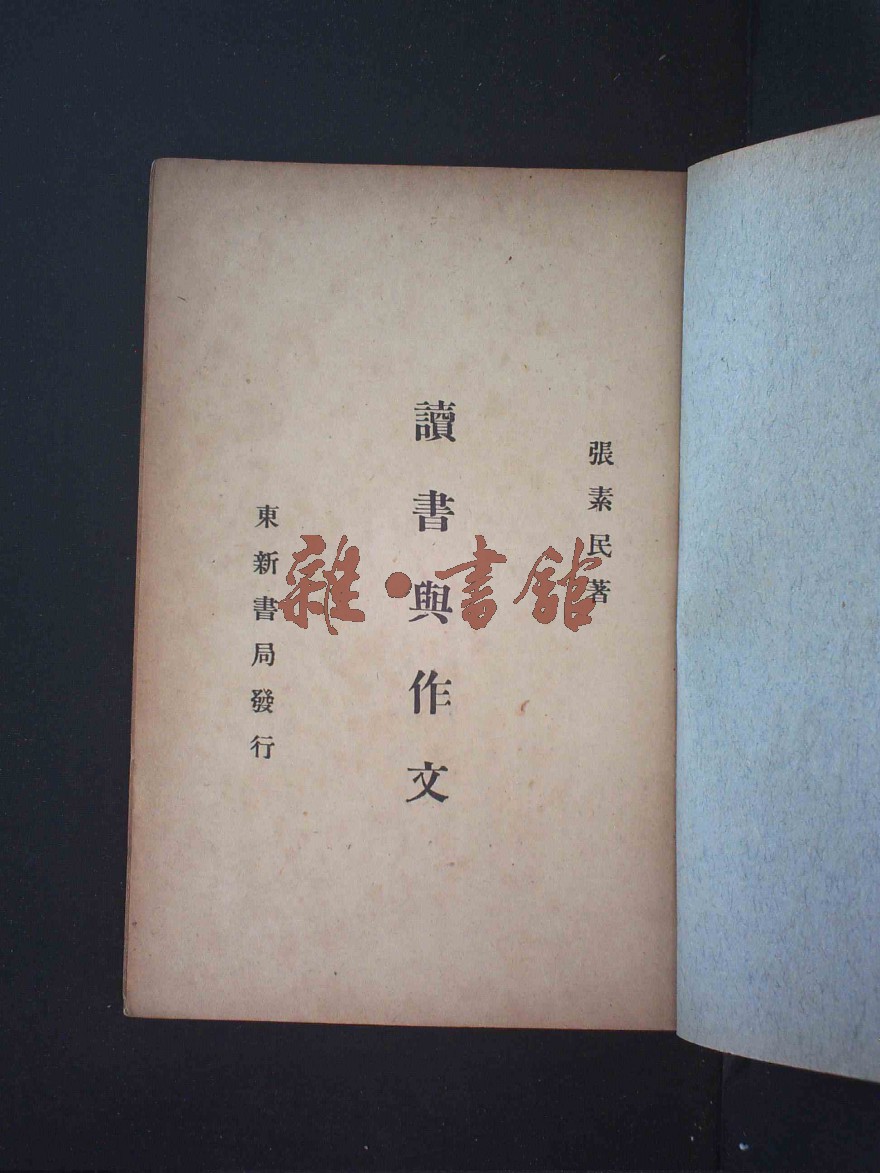 張素民著
讀書與作文
東新書局發行
雜·書館